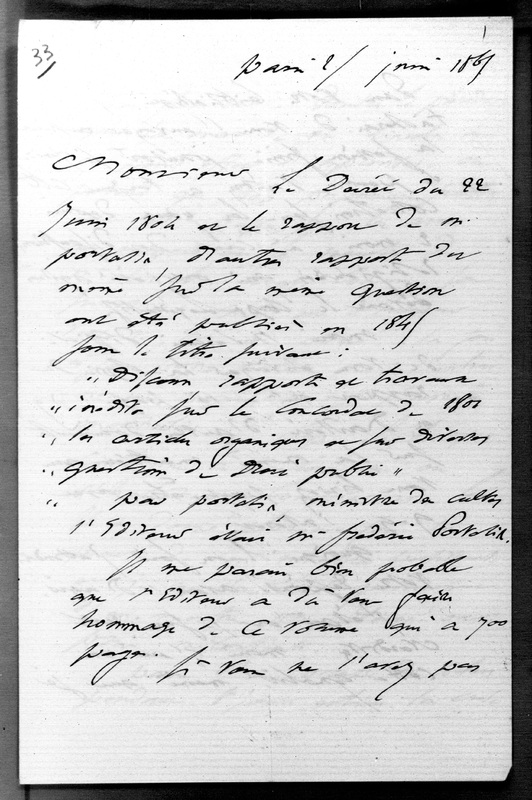 33
Paris 2/ juin 186
Monsieur Le Décret du 22
Juin 1804 et le rapport de m.
portalis, d'autres rapports du
même sur la même question
ont été publiés en 1845
sous le titre suivant :
"Discours rapports et travaux
"inédits sur le Concordat de 1801
"les articles organiques et sur diverses
"questions de Droit public"
" par portalis, ministre des cultes
l'Editeur était mr frédéric Portalis.
Il me parait bien probable
que l'Editeur a dû vous faire
hommage de ce volume qui a 700
pages. Si vous ne l'avez pas